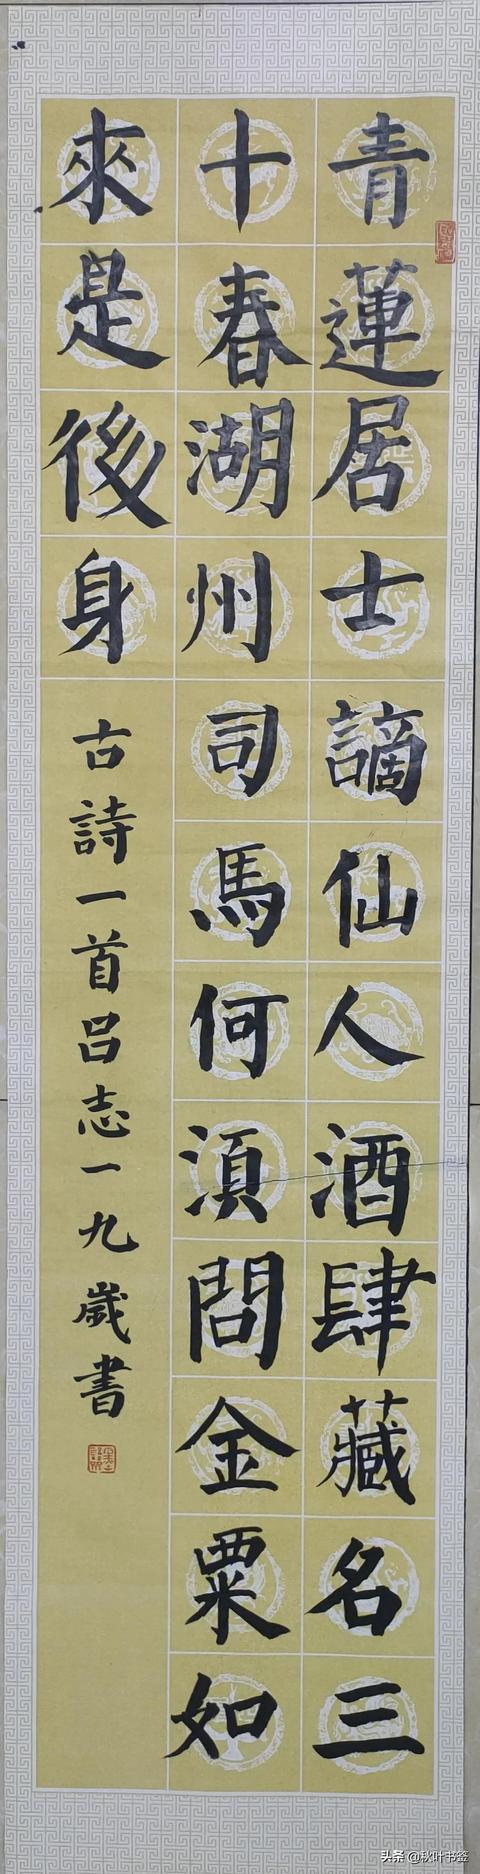 青蓮居士謫仙人酒肆藏名三
十春湖州司馬何須問金粟如
來是後身
古詩一首呂志一九歲書
头条 @秋叶书签